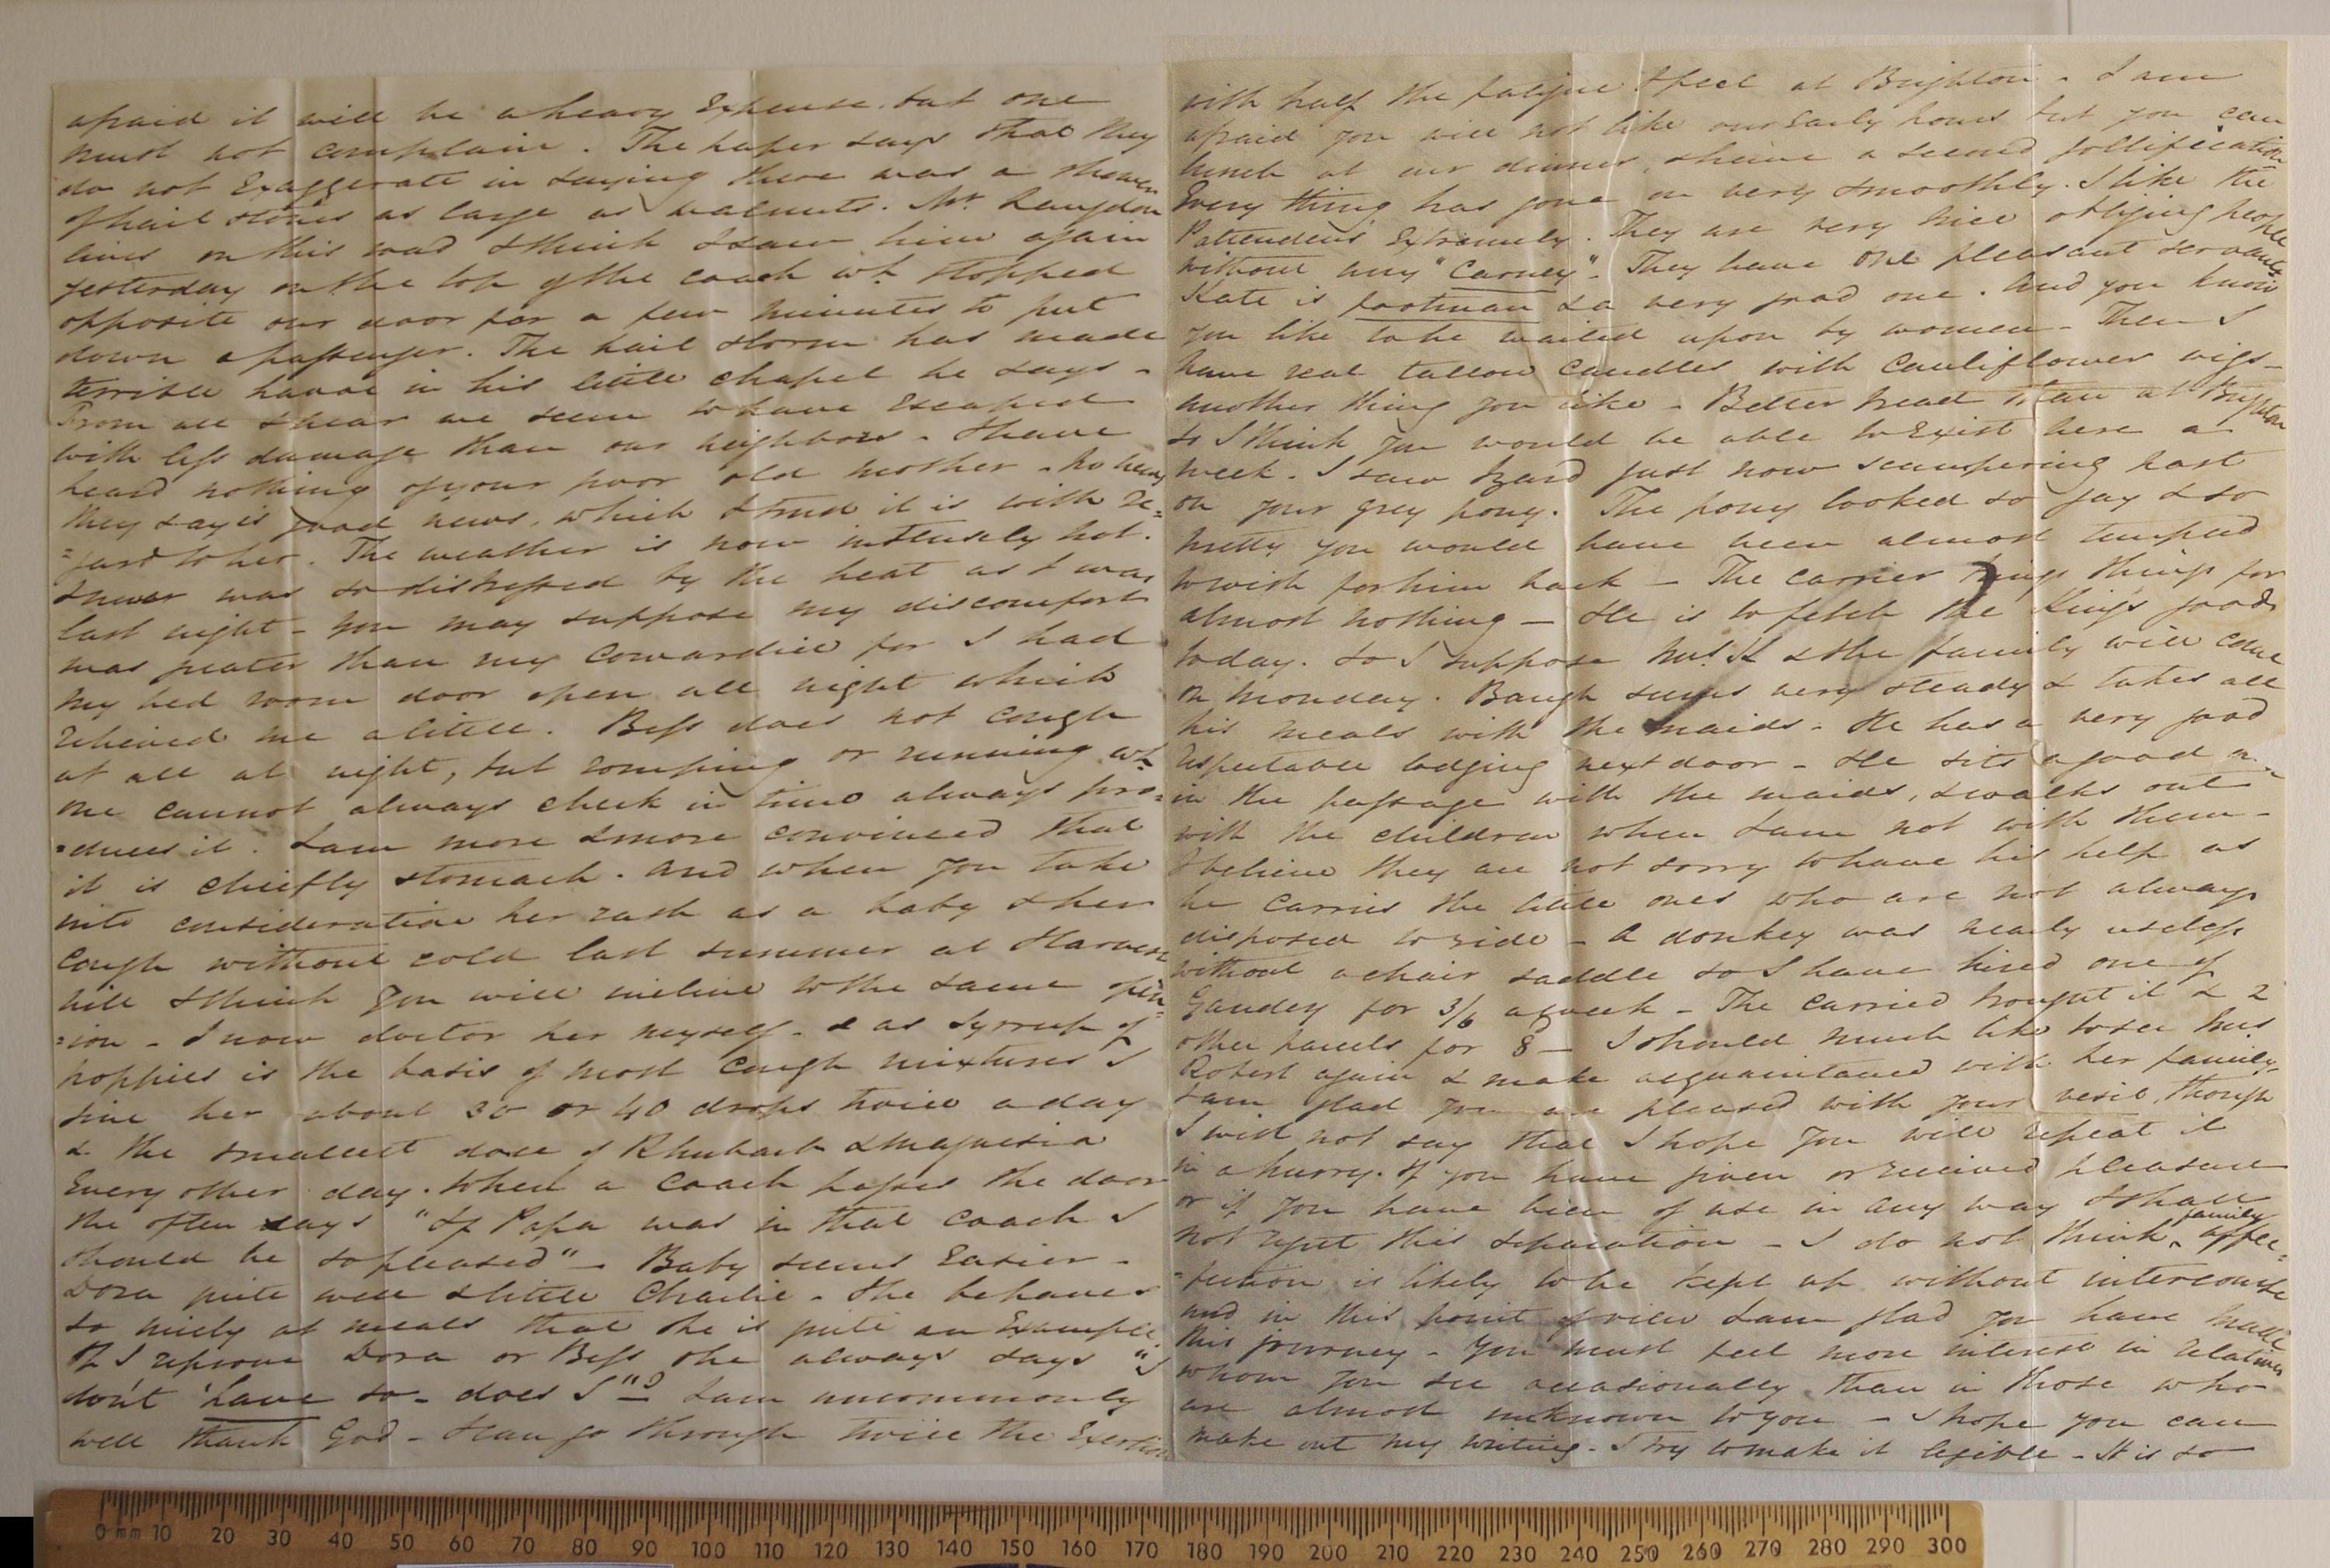 afraid it will be a heavy Expense. but one
must not complain. The paper says that they
do not Exaggerate in saying there was a shower
of hail stones as large as walnuts. Mr. Langdon
lives on this road I think I saw him again
yesterday on the top of the coach wh. stopped
opposite our door for a few minutes to put
down a passenger. The hail storm has made
terrible havoc in his little chapel he says -
From all I hear we seem to have Escaped
with less damage than our neighbors. I have
heard nothing of your poor old mother - no news
they say is good news, which I trust it is with re=
=gard to her. The weather is now intensely hot.
I never was so distressed by the heat as I was
last night - You may suppose my discomfort
was greater than my Cowardice for I had
my bed room door open all night which
relieved me a little. Bess does not cough
at all at night, but romping or running wh.
one cannot always check in time always pro=
=duces it. I am more & more convinced that
it is chiefly stomach. And when you take
into consideration her rash as a baby & her
Cough without cold last summer at Harvest
hill I think you will incline to the same opin=
=ion - I now doctor her myself - & as Syrrup of
poppies is the basis of most Cough mixtures I
give her about 30 or 40 drops twice a day
& the smallest dose of Rhubarb & Magnesia
Every other day. When a Coach passes the door
she often says "If Papa was in that Coach I
should be so pleased" - Baby seems Easier -
Dora quite well & little Charlie - She behaves
so nicely at meals that she is quite an Example
If I reprove Dora or Bess she always says "I
don't 'have so - does I"? I am uncommonly
well thank God - I can go through twice the Exertion
with half the fatigue I feel at Brighton - I am
afraid you will not like our Early hours but you can
lunch at our dinner, & have a second jollification
Every thing has gone on very smoothly. I like the
Pattendens Extremely. They are very nice obliging people
without any "Carney". They have one pleasant servant,
Kate is footman & a very good one. And you know
you like to be waited upon by women - Then I
have real tallow Candles with Cauliflower wigs -
another thing you like - Better bread than at Brighton
so I think you would be able to Exist here a
week. I saw Izard just now scampering past
on your grey pony. The pony looked so gay & so
pretty you would have been almost tempted
to wish for him back - The Carrier brings things for
almost nothing - He is to fetch the King's goods
today. So I suppose Mrs. K & the family will come
on Monday. Baugh seems very steady & takes all
his meals with the maids - He has a very good
respectable lodging next door - He sits a good
in the passage with the maids, & walks out
with the children when I am not with them -
I believe they are not sorry to have his help as
he Carries the little ones who are not always
disposed to ride - A donkey was nearly useless
without a chair saddle so I have hired one of
Gandey for 3/6 a week - The Carrier brought it & 2
other parcels for 8 - I should much like to see Mrs
Robert again & make acquaintance with her family,
I am glad you are pleased with your visit, though
I will not say that I hope you will repeat it
in a hurry. If you have given or received pleasure
or if you have been of use in any way I shall
not regret this separation - I do not think family affec=
=tion is likely to be kept up without intercourse
and in this point of view I am glad you have made
this journey - You must feel more interest in relatives
whom you see occasionally than in those who
are almost unknown to you - I hope you can
make out my writing - I try to make it legible - It is so
0 mm 10 20 30 40 50 60 70 80 90 100 110 120 130 140 150 160 170 180 190 200 210 220 230 240 250 260 270 280 290 300